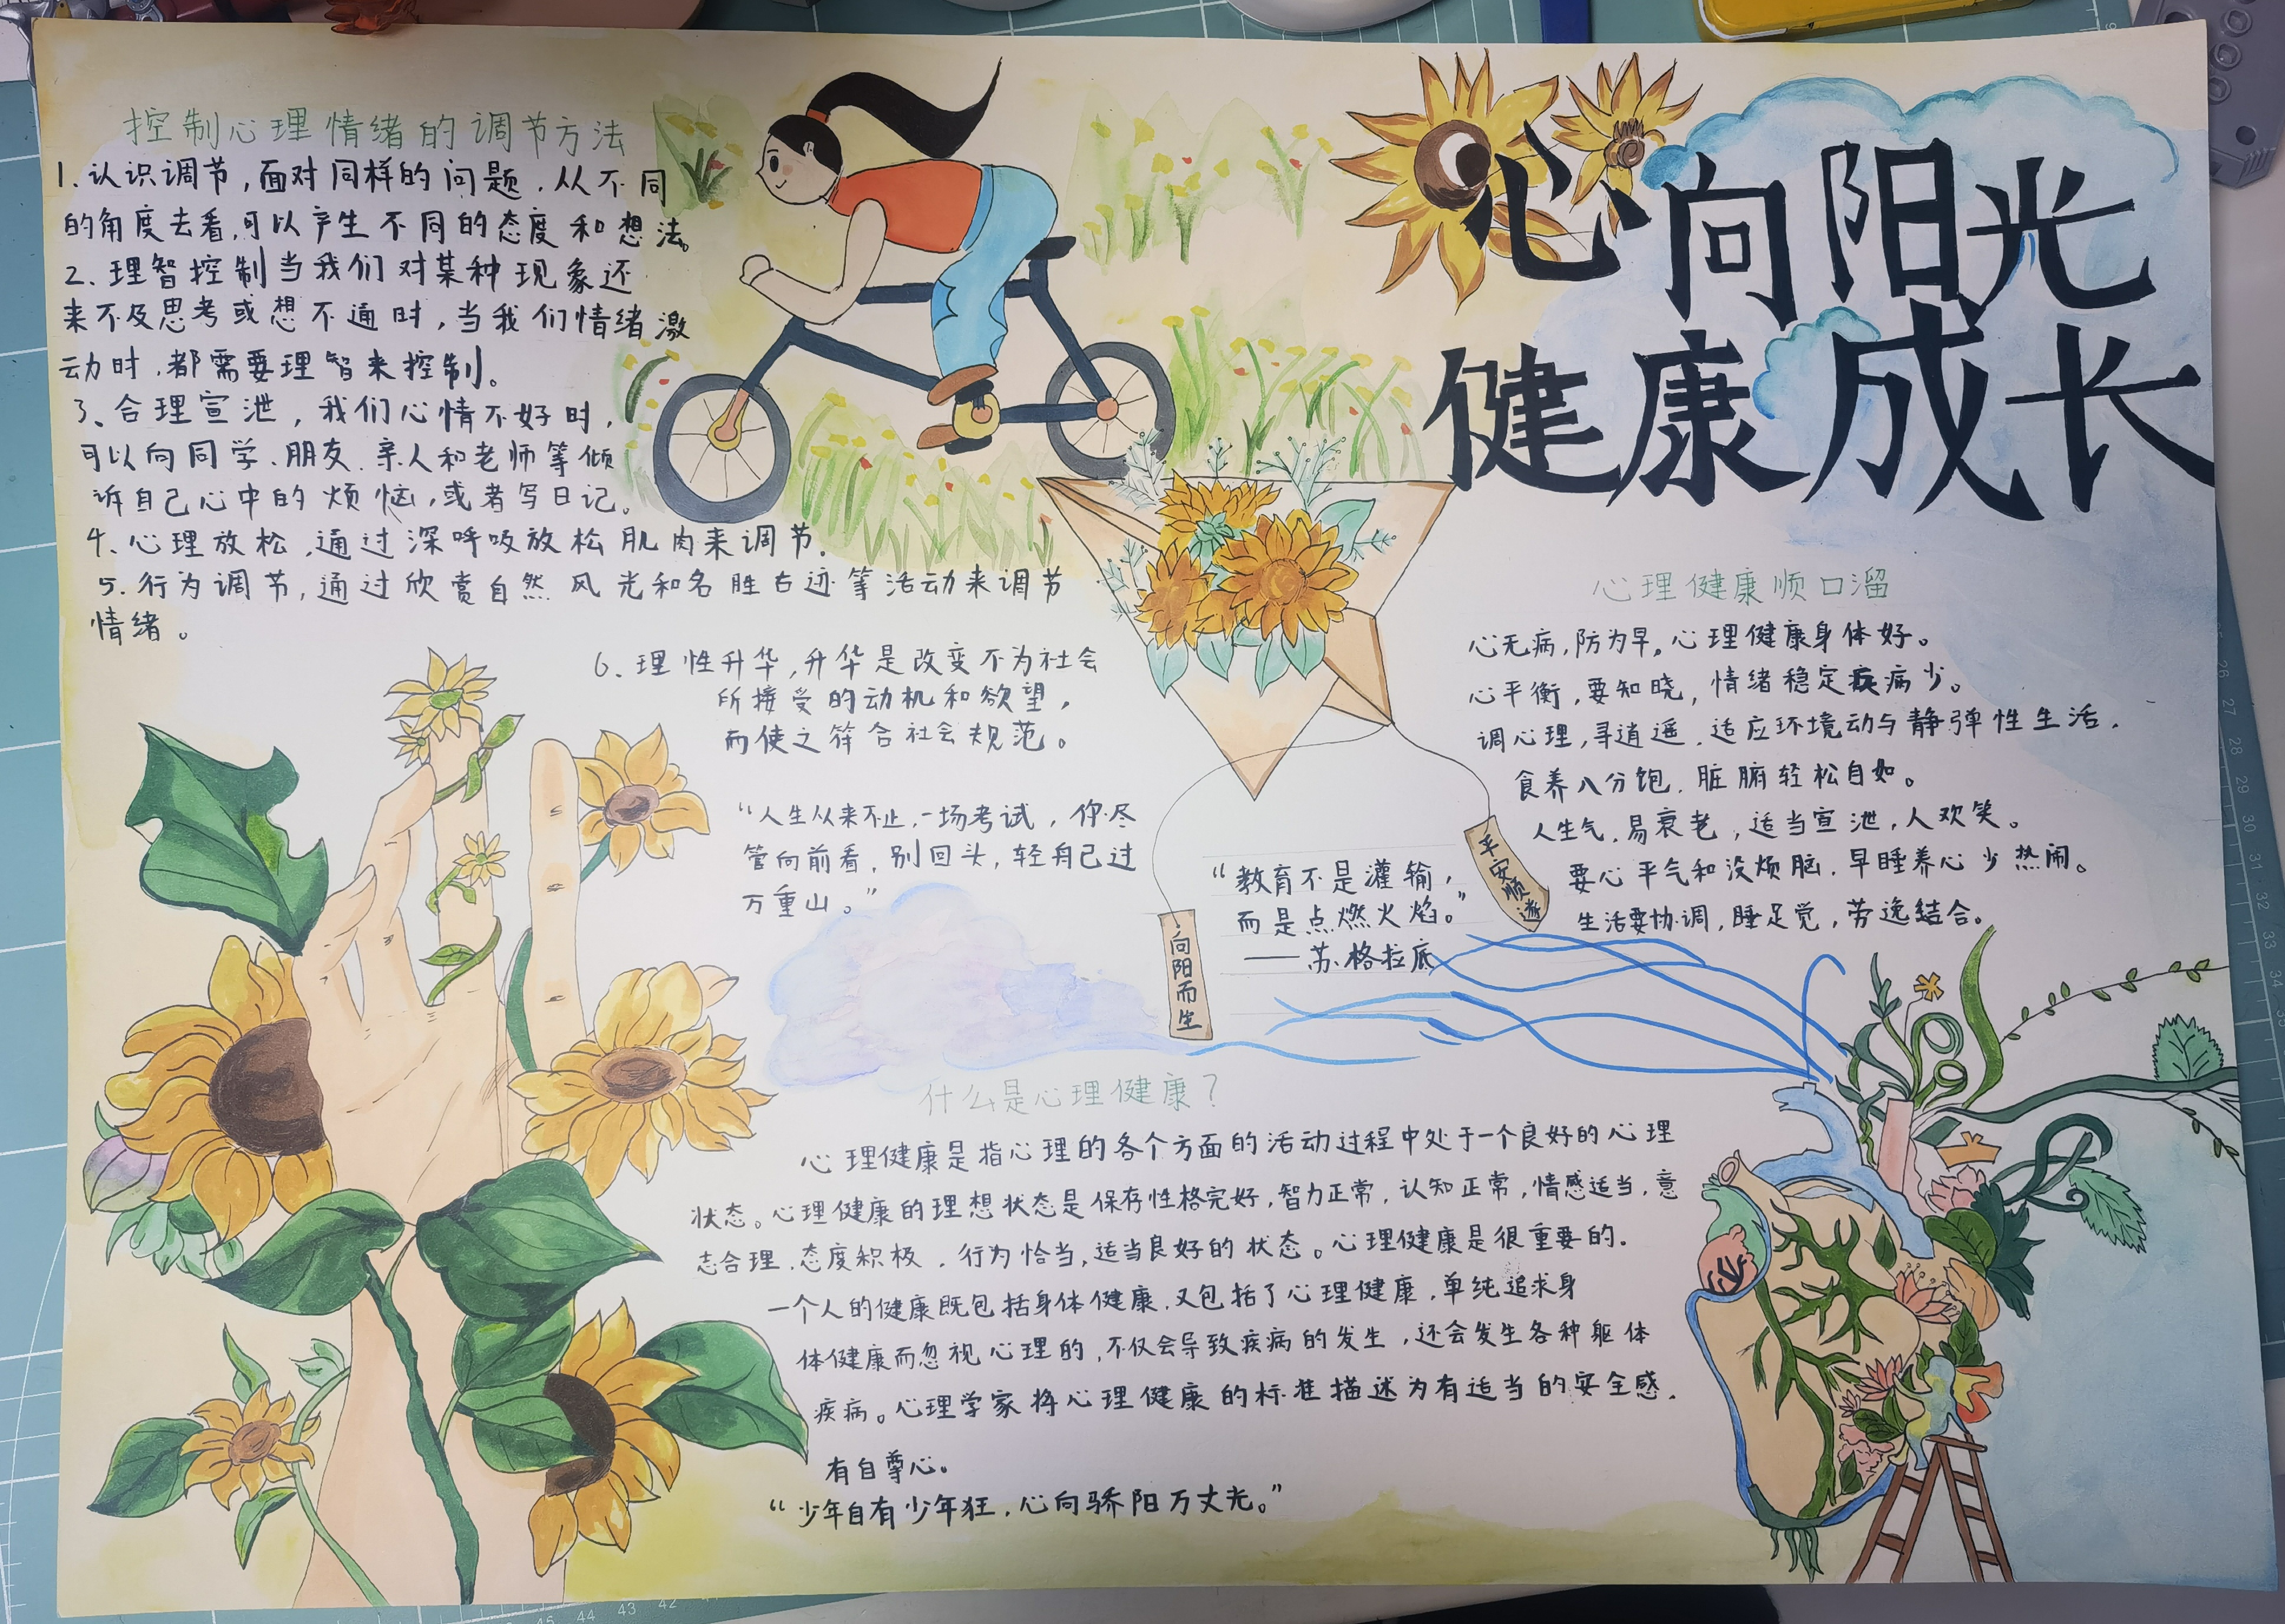 心向阳光
健康成长
控制心理情绪的调节方法
1.认识调节,面对同样的问题,从不同
的角度去看,可以产生不同的态度和想法。
2、理智控制当我们对某种现象还
来不及思考或想不通时,当我们情绪激
动时,都需要理智来控制。
3、合理宣泄,我们心情不好时,
可以向同学、朋友、亲人和老师等倾
诉自己心中的烦恼,或者写日记。
4、心理放松,通过深呼吸放松肌肉来调节.
5.行为调节,通过欣赏自然风光和名胜古迹等活动来调节
情绪。
6、理性升华,升华是改变不为社会
所接受的动机和欲望,
而使之符合社会规范。
“人生从来不止,一场考试,你尽
管向前看,别回头,轻舟己过
万重山。”
“教育不是灌输,
而是点燃火焰。”
——苏格拉底
向阳而生
平安顺遂
心理健康顺口溜
心无病,防为早,心理健康身体好。
心平衡,要知晓,情绪稳定疾病少。
调心理,寻逍遥,适应环境动与静弹性生活.
食养八分饱,脏腑轻松自如。
人生气,易衰老,适当宣泄,人欢笑。
要心平气和没烦脑,早睡养心少热闹。
生活要协调,睡足觉,劳逸结合。
什么是心理健康?
心理健康是指心理的各个方面的活动过程中处于一个良好的心理
状态。心理健康的理想状态是保存性格完好,智力正常,认知正常,情感适当,意
志合理,态度积极,行为恰当,适当良好的状态。心理健康是很重要的.
一个人的健康既包括身体健康,又包括了心理健康,单纯追求身
体健康而忽视心理的,不仅会导致疾病的发生,还会发生各种躯体
疾病。心理学家将心理健康的标准描述为有适当的安全感,
有自尊心.
“少年自有少年狂,心向骄阳万丈光。”